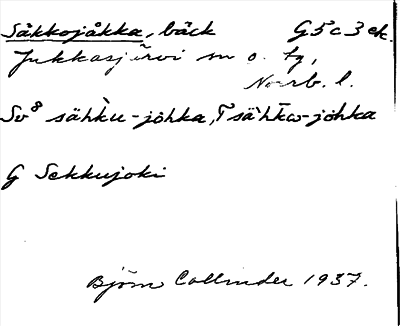 Såkkojåkka, bäck G5c3ek.
Jukkasjärvi sn o. tg,
Norrb. l.
Sv⁸ sähku-johka, T sähkw-johka
G Sekkujoki
Björn Collinder 1937.